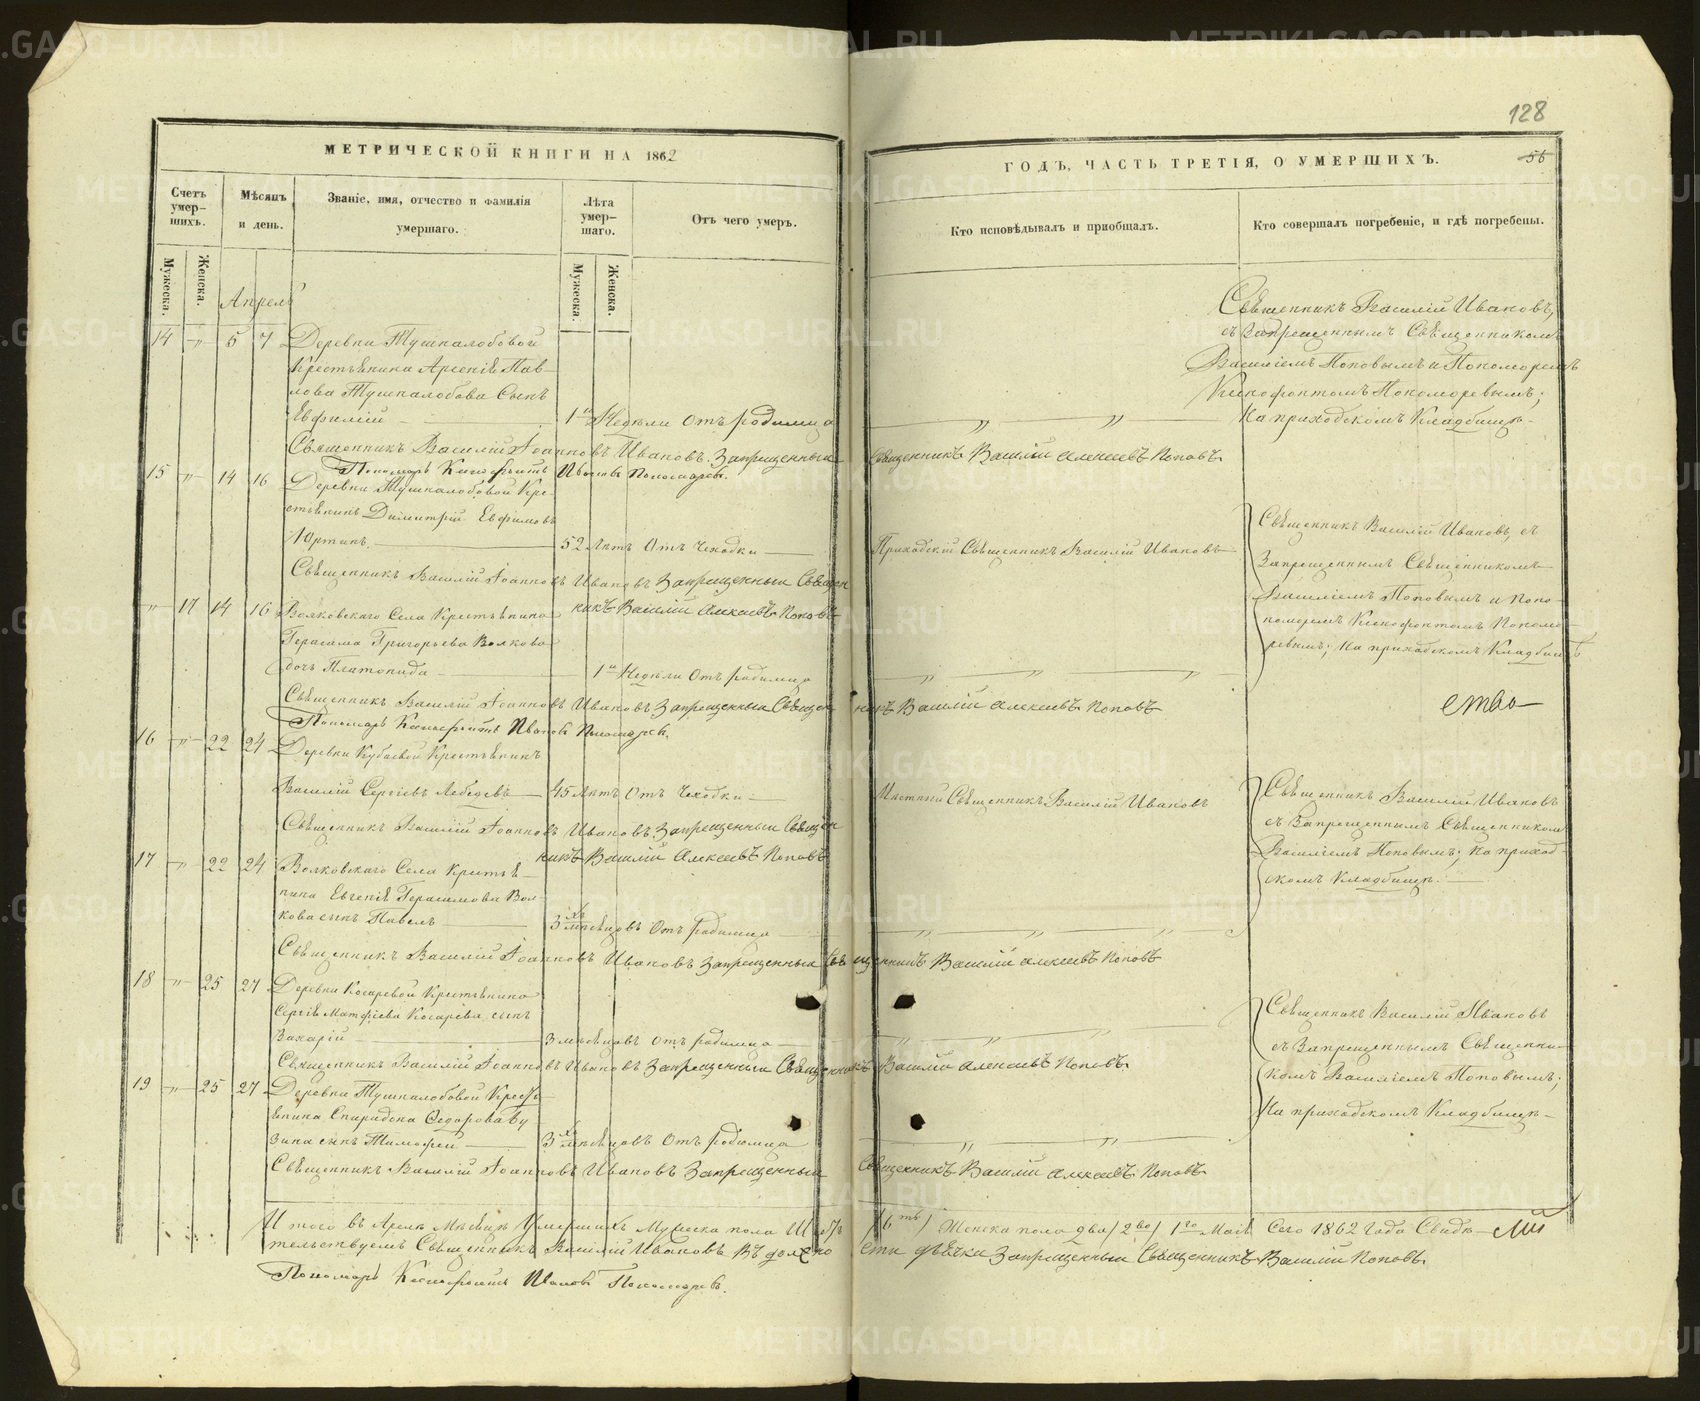 128
МЕТРИЧЕСКОЙ КНИГИ НА 1862
ГОДЪ, ЧАСТЬ ТРЕТІЯ, О УМЕРШИХЪ.
56
Счетъ умер-шихъ.
Мужеска.
Женска.
Мѣсяцъ и день.
Званіе, имя, отчество и фамилія умершаго.
Лѣта умер-шаго.
Мужеска.
Женска.
Отъ чего умеръ.
Кто исповѣдывалъ и пріобщалъ.
Кто совершалъ погребеніе, и гдѣ погребены.
Апрель
14 " 5 7 Деревни Тушкалобовой
Крестьянина Арсенія Пав-
лова Тушкалобова Сынъ
Евфимій 1 Недели Отъ родимца
Священникъ Василій Ивановъ,
съ Запрещеннымъ Священникомъ
Василіемъ Поповымъ и Пономоремъ
Ксенофонтомъ Пономоревымъ;
На приходскомъ Кладбище.
Священникъ Василій Іоанновъ Ивановъ. Запрещенный Священникъ Василій Алексеевъ Поповъ
Пономарь Ксенофонтъ Ивановъ Пономаревъ.
15 " 14 16 Деревни Тушкалобовой Кре-
стьянинъ Димитрій Евфимовъ
Юртинъ. 52 Летъ Отъ Чеходки
Приходскій Священникъ Василій Ивановъ
Священникъ Василій Ивановъ, съ
Запрещеннымъ Священникомъ
Василіемъ Поповымъ и Поно-
номоремъ Ксенофонтомъ Пономо-
ревымъ; На приходскомъ Кладбищѣ
Священникъ Василій Іоанновъ Ивановъ Запрещенный Священ
никъ Василій Алексеевъ Поповъ
" 17 14 16 Волковскаго Села Крестьянина
Герасима Григорьева Волкова
дочь Платонида 1 Недели Отъ родимца
Священникъ Василій Іоанновъ Ивановъ Запрещенный Священникъ Василій Алексеевъ Поповъ
ство
Пономарь Ксенофонтъ Ивановъ Пономаревъ.
16 " 22 24 Деревни Кубаевой Крестьянинъ
Василій Сергіевъ Лебедевъ 45 Летъ Отъ Чеходки
Местный Священникъ Василій Ивановъ
Священникъ Василій Ивановъ
съ Запрещеннымъ Священникомъ
Василіемъ Поповымъ; На приход-
скомъ Кладбище.
Священникъ Василій Іоанновъ Ивановъ. Запрещенный Священ
никъ Василій Алексеевъ Поповъ
17 " 22 24 Волковскаго Села Крестья-
нина Евгенія Герасимова Вол-
кова сынъ Павелъ 3 хъ месяцовъ Отъ родимца
Священникъ Василій Іоанновъ Ивановъ Запрещенный Священникъ Василій Алексеевъ Поповъ
18 " 25 27 Деревни Косаревой Крестьянина
Сергія Матфіева Косарева сынъ
Захарій 3 месяцовъ отъ родимца
Священникъ Василій Ивановъ
съ Запрещеннымъ Священни-
комъ Василіемъ Поповымъ;
На приходскомъ Кладбище
Священникъ Василій Іоанновъ Ивановъ Запрещенный Священникъ Василій Алексеевъ Поповъ
19 " 25 27 Деревни Тушкалобовой Кресть-
янина Спиридона Ѳедорова Бу
зина сынъ Тимофей 3 хъ месяцовъ Отъ родимца
Священникъ Василій Іоанновъ Ивановъ Запрещенный Священникъ Василій Алексеевъ Поповъ
Итого въ Апреле Месяце Умершихъ Мужеска пола /6ть/ Женска пола два /2ва/ 1го Маія Сего 1862 Года Свиде-
тельствуемъ Священникъ Василій Ивановъ Въ должно сти дьячка Запрещенный Священникъ Василій Поповъ.
Пономарь Ксенофонтъ Ивановъ Пономаревъ.
METRIKI.GASO-URAL.RU